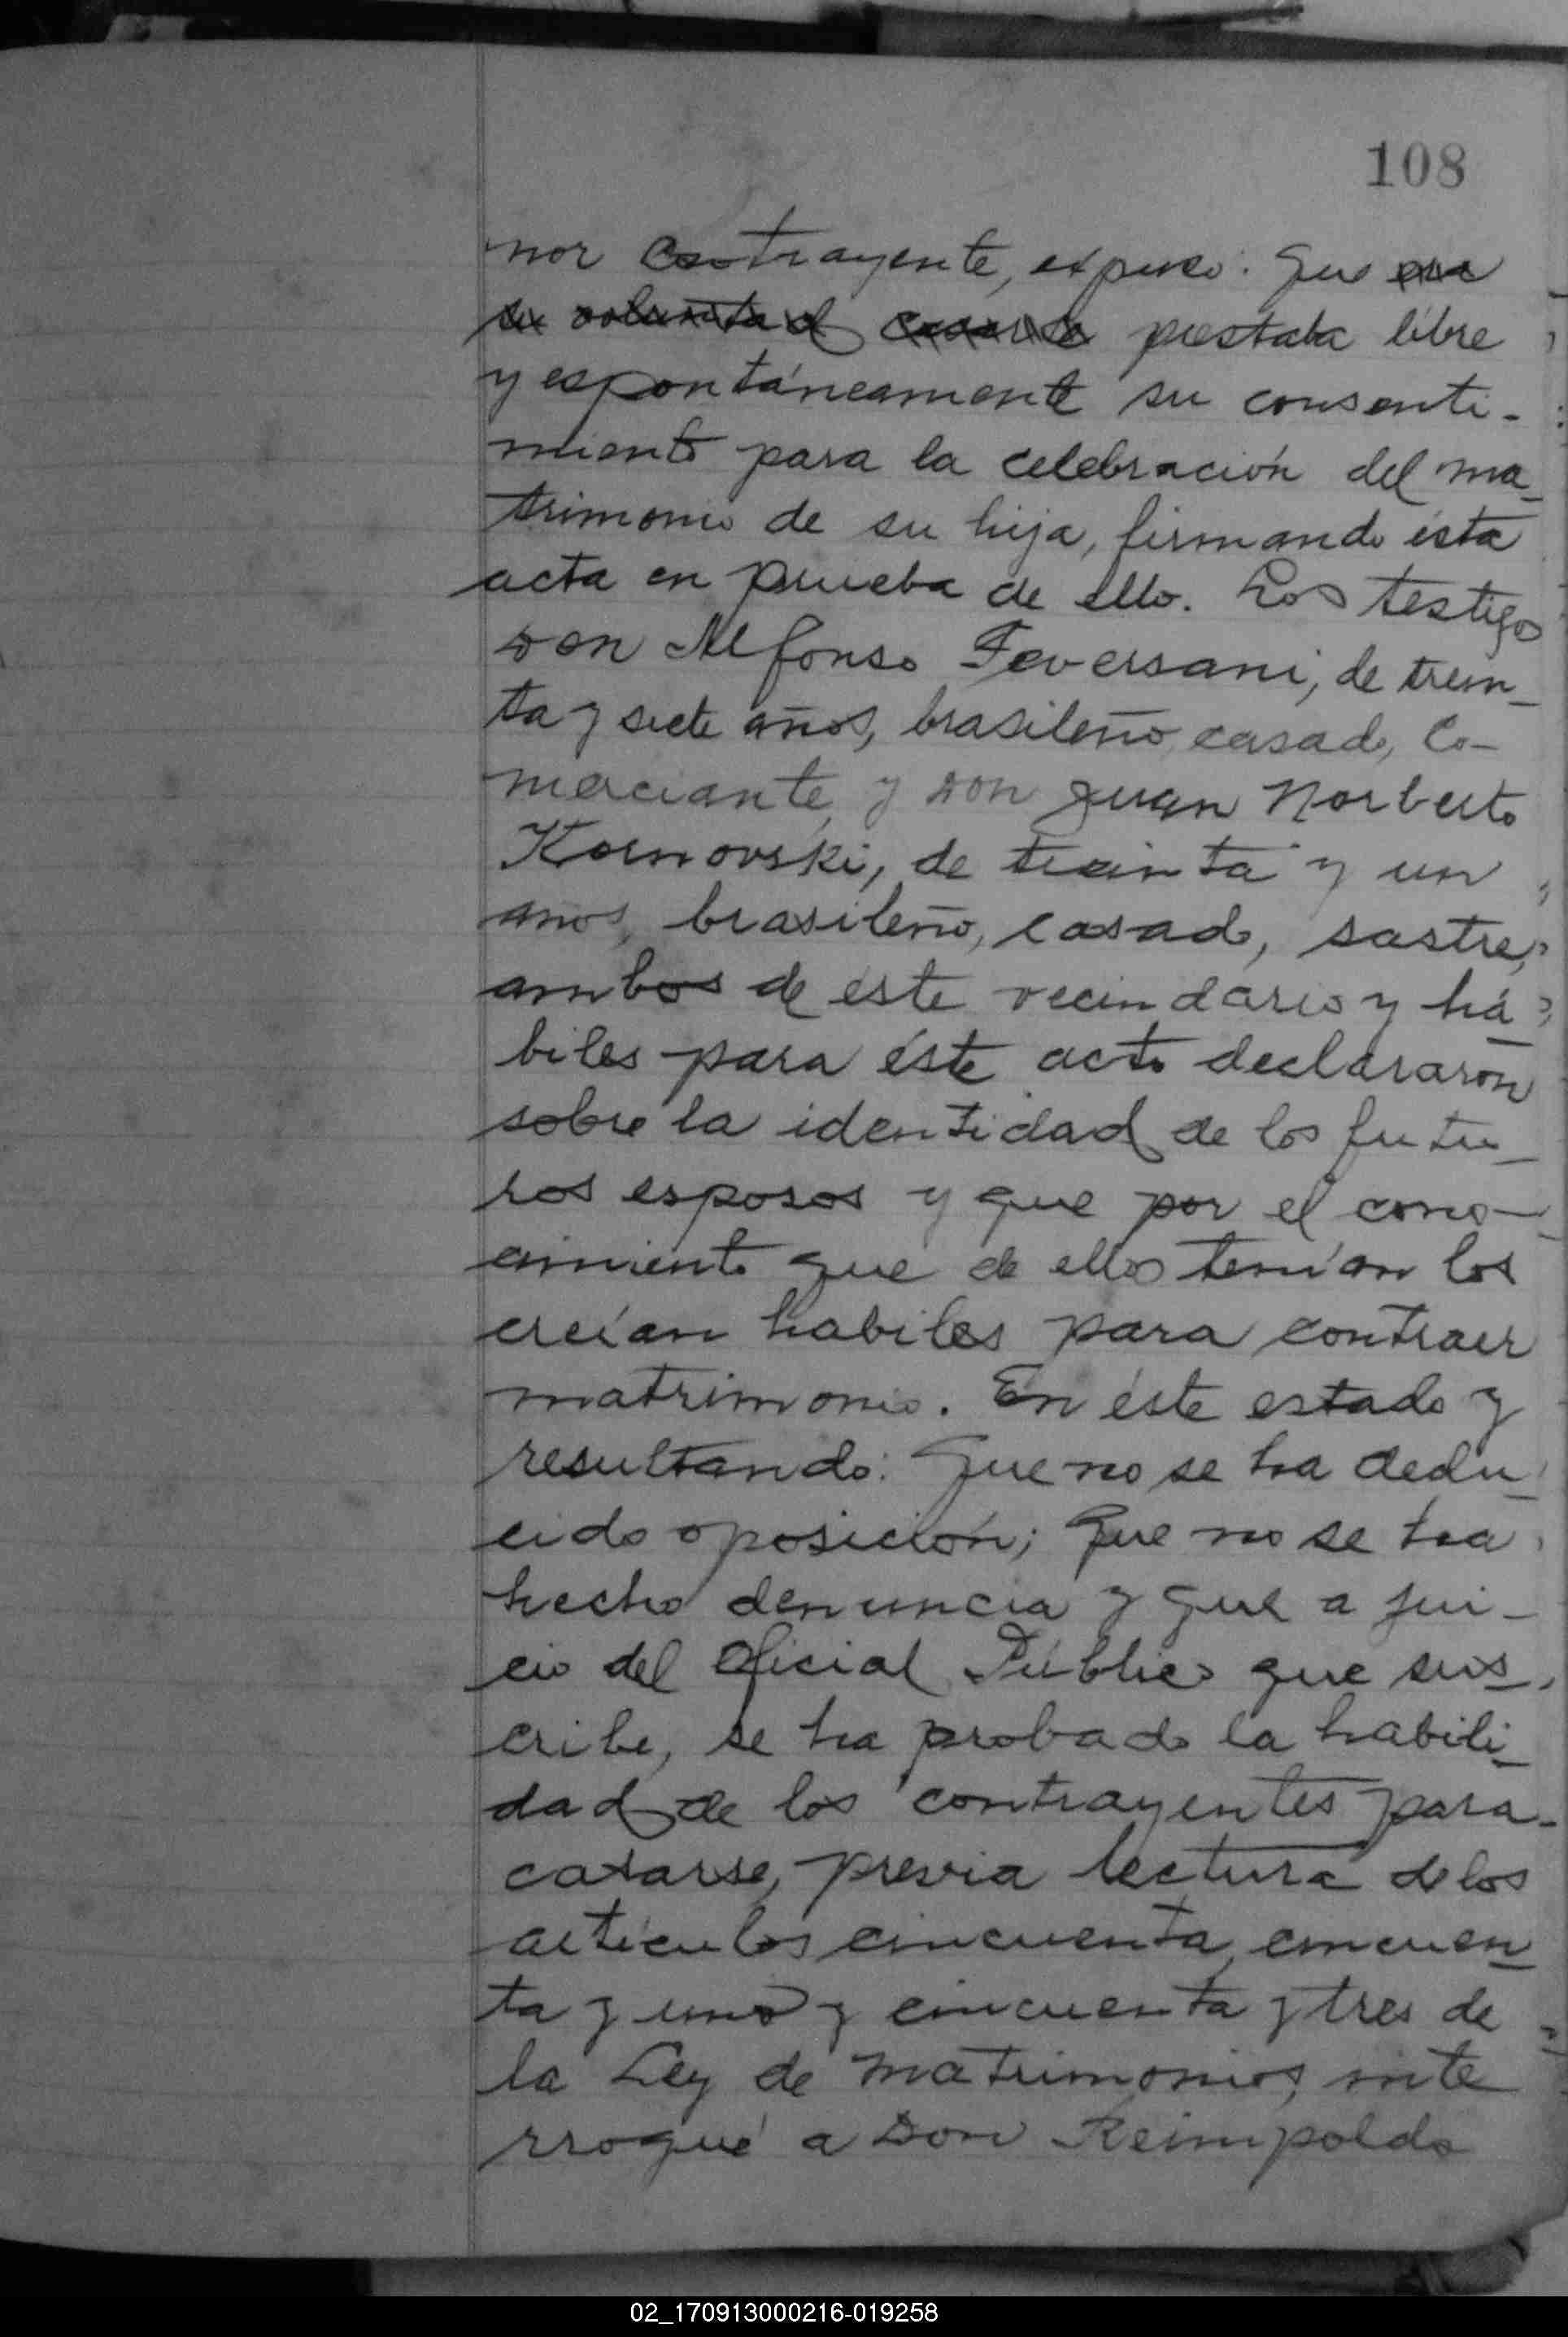 108
nor Contrayente, expuso: Que era
su voluntad casarla prestaba libre
y espontáneamente su consenti-
miento para la celebración del ma-
trimonio de su hija, firmando ésta
acta en prueba de ello. Los testigos
Don Alfonso Feversani, de trein-
ta y siete años, brasileño, casado, Co-
merciante, y Don Juan Norberto
Kornovski, de treinta y un
años, brasileño, casado, sastre,
ambos de éste vecindario y há-
biles para éste acto declararon
sobre la identidad de los futu-
ros esposos y que por el cono-
cimiento que de ellos tenían los
creían habiles para contraer
matrimonio. En éste estado y
resultando: Que no se ha dedu-
cido oposición; Que no se ha
hecho denuncia y que a jui-
cio del Oficial Público que sus-
cribe, se ha probado la habili-
dad de los contrayentes para
casarse, previa lectura de los
articulos cincuenta, cincuen-
ta y uno y cincuenta y tres de
la Ley de Matrimonios, inte
rrogué a Don Reimpoldo
02_170913000216-019258